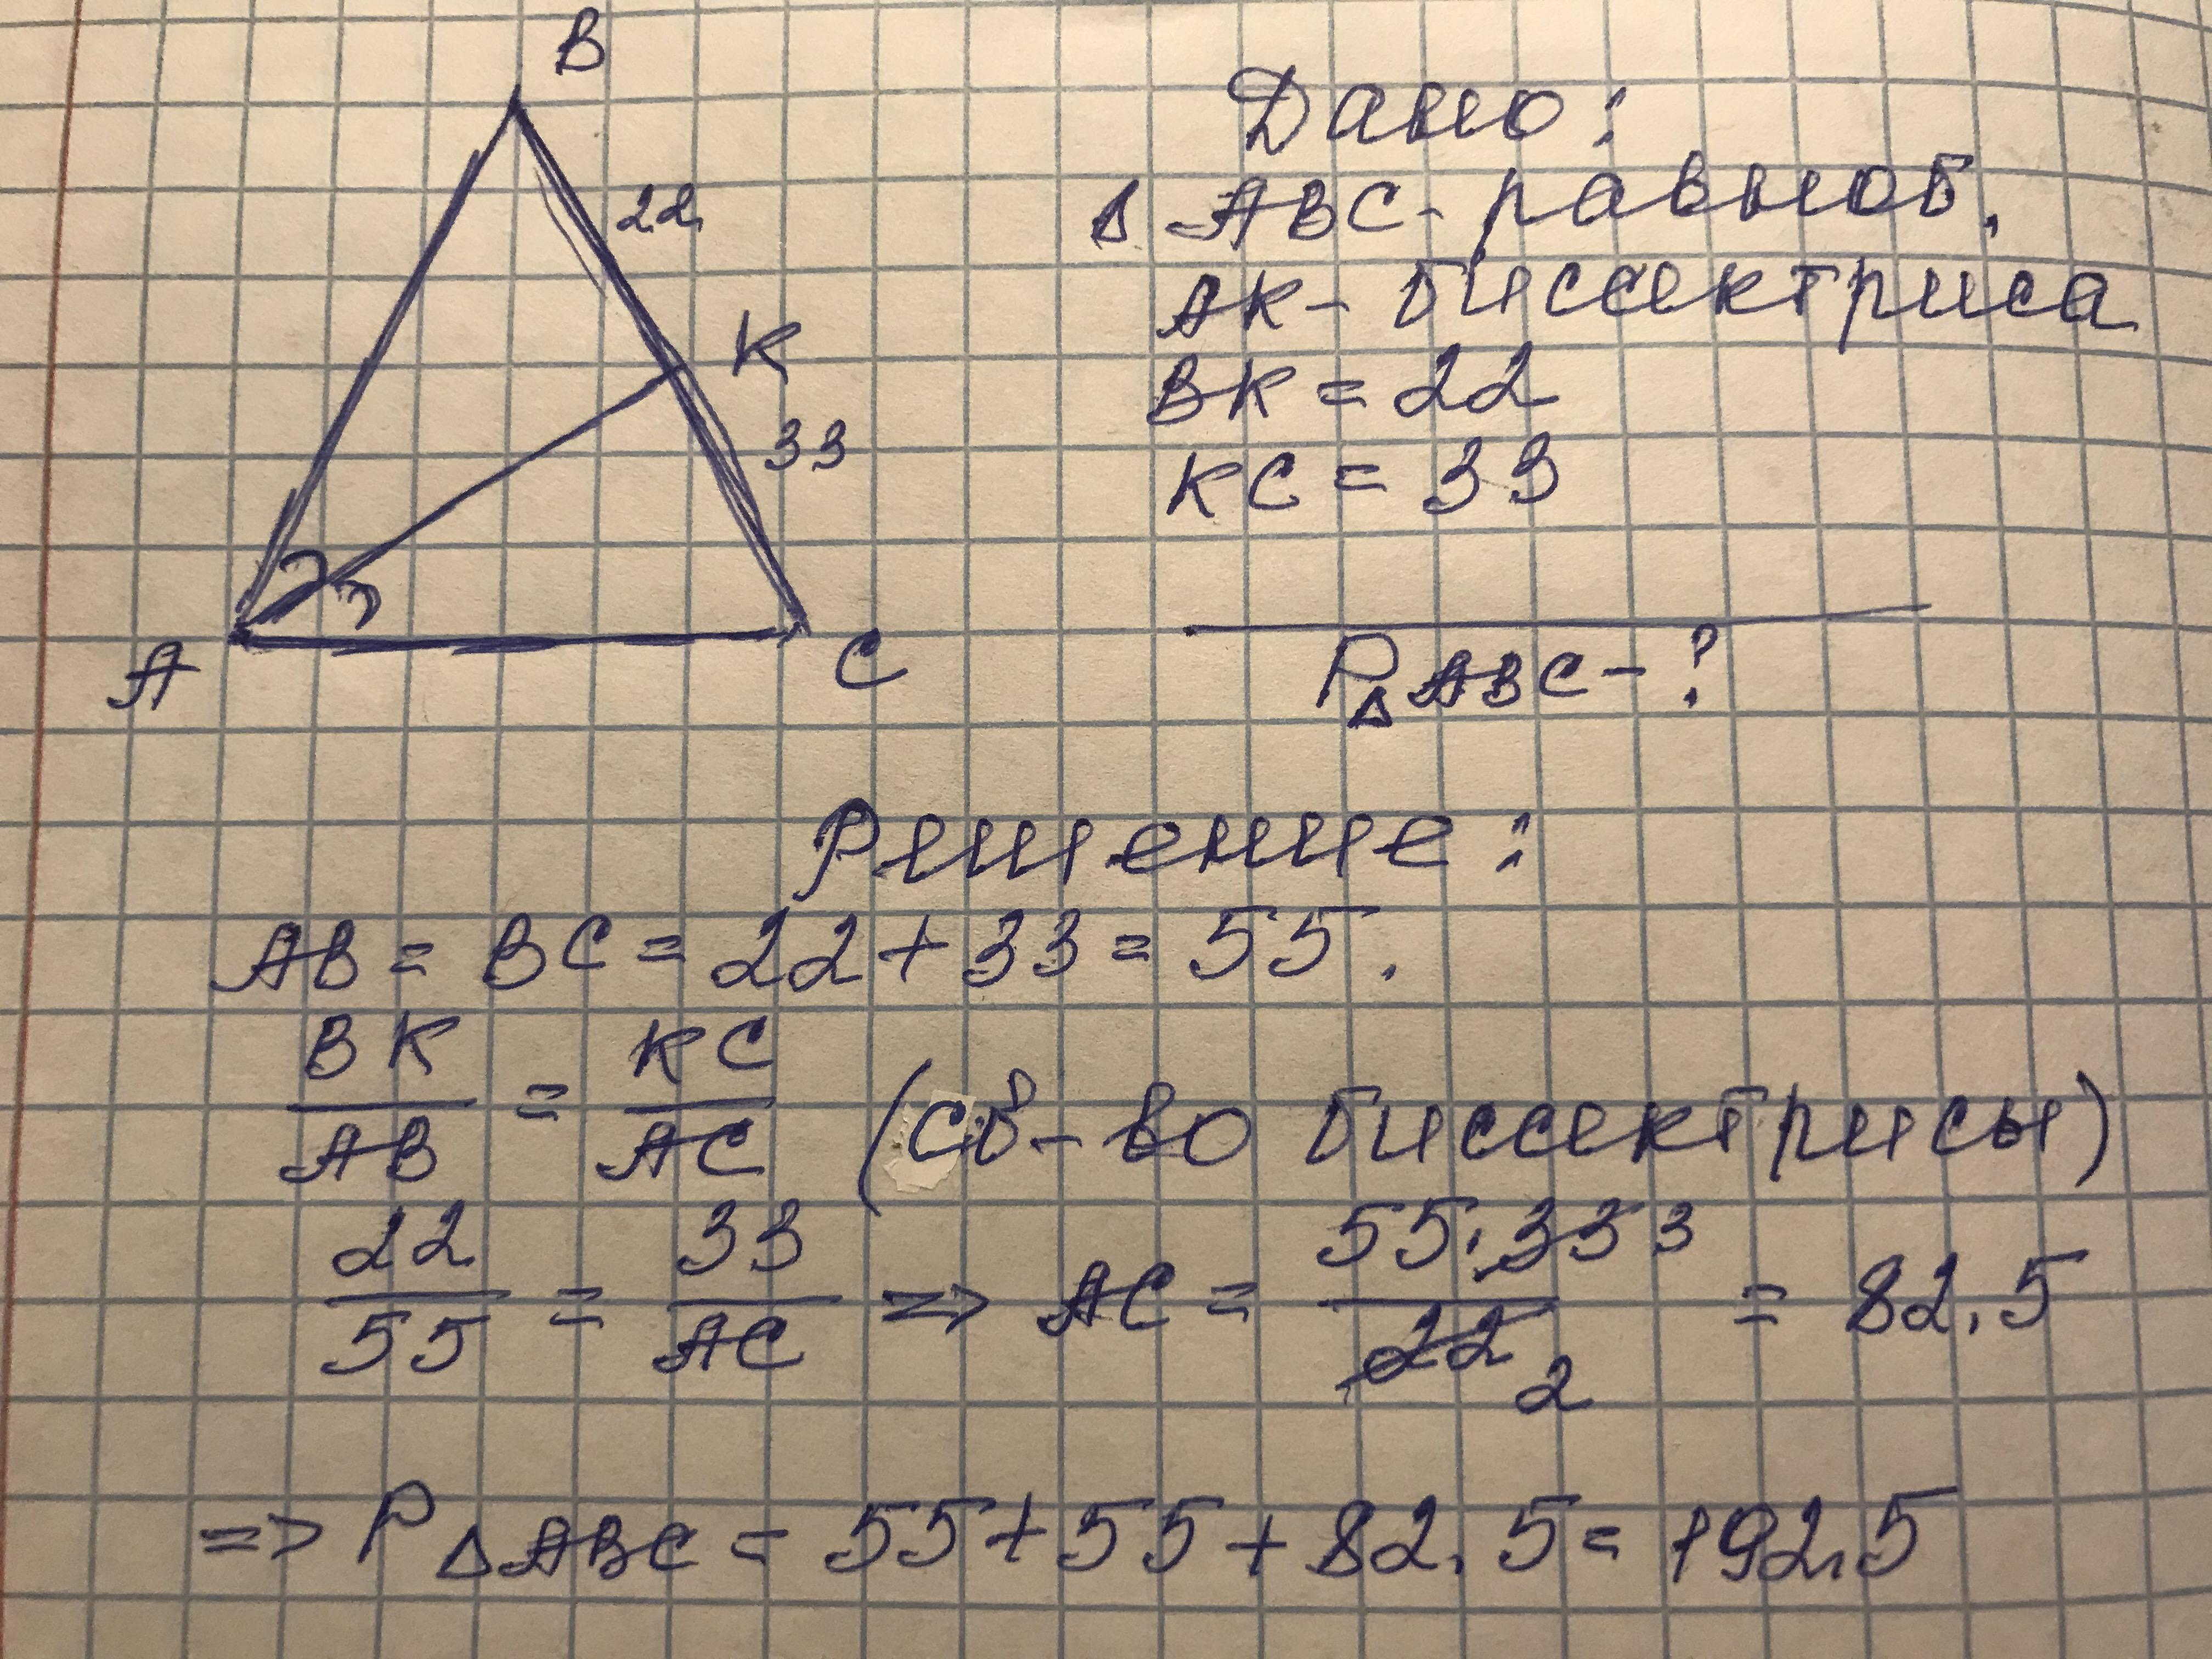 B
22
K
33
A
C
Дано:
Δ ABC - равноб.
AK - биссектриса
BK = 22
KC = 33
P Δ ABC - ?
Решение:
AB = BC = 22 + 33 = 55.
BK/AB = KC/AC (Св-во биссектрисы)
22/55 = 33/AC => AC = 55·33 3/22 2 = 82.5
=> P Δ ABC = 55 + 55 + 82.5 = 192.5